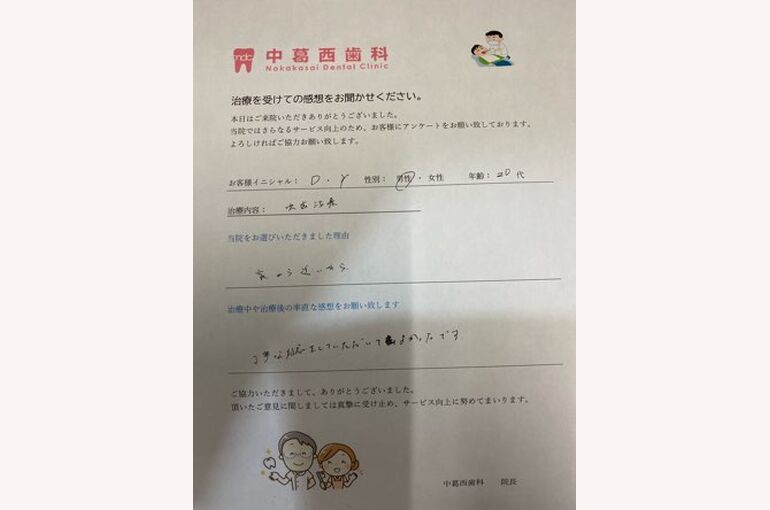 ndc 中葛西歯科
Nakakasai Dental Clinic
治療を受けての感想をお聞かせください。
本日はご来院いただきありがとうございました。
当院ではさらなるサービス向上のため、お客様にアンケートをお願い致しております。
よろしければご協力お願い致します。
お客様イニシャル： D・Y 性別： 男性・女性 年齢：20代
治療内容： 虫歯治療
当院をお選びいただきました理由
家から近いから
治療中や治療後の率直な感想をお願い致します
丁寧な対応をしていただいてよかったです
ご協力いただきまして、ありがとうございました。
頂いたご意見に関しましては真摯に受け止め、サービス向上に努めてまいります。
中葛西歯科 院長